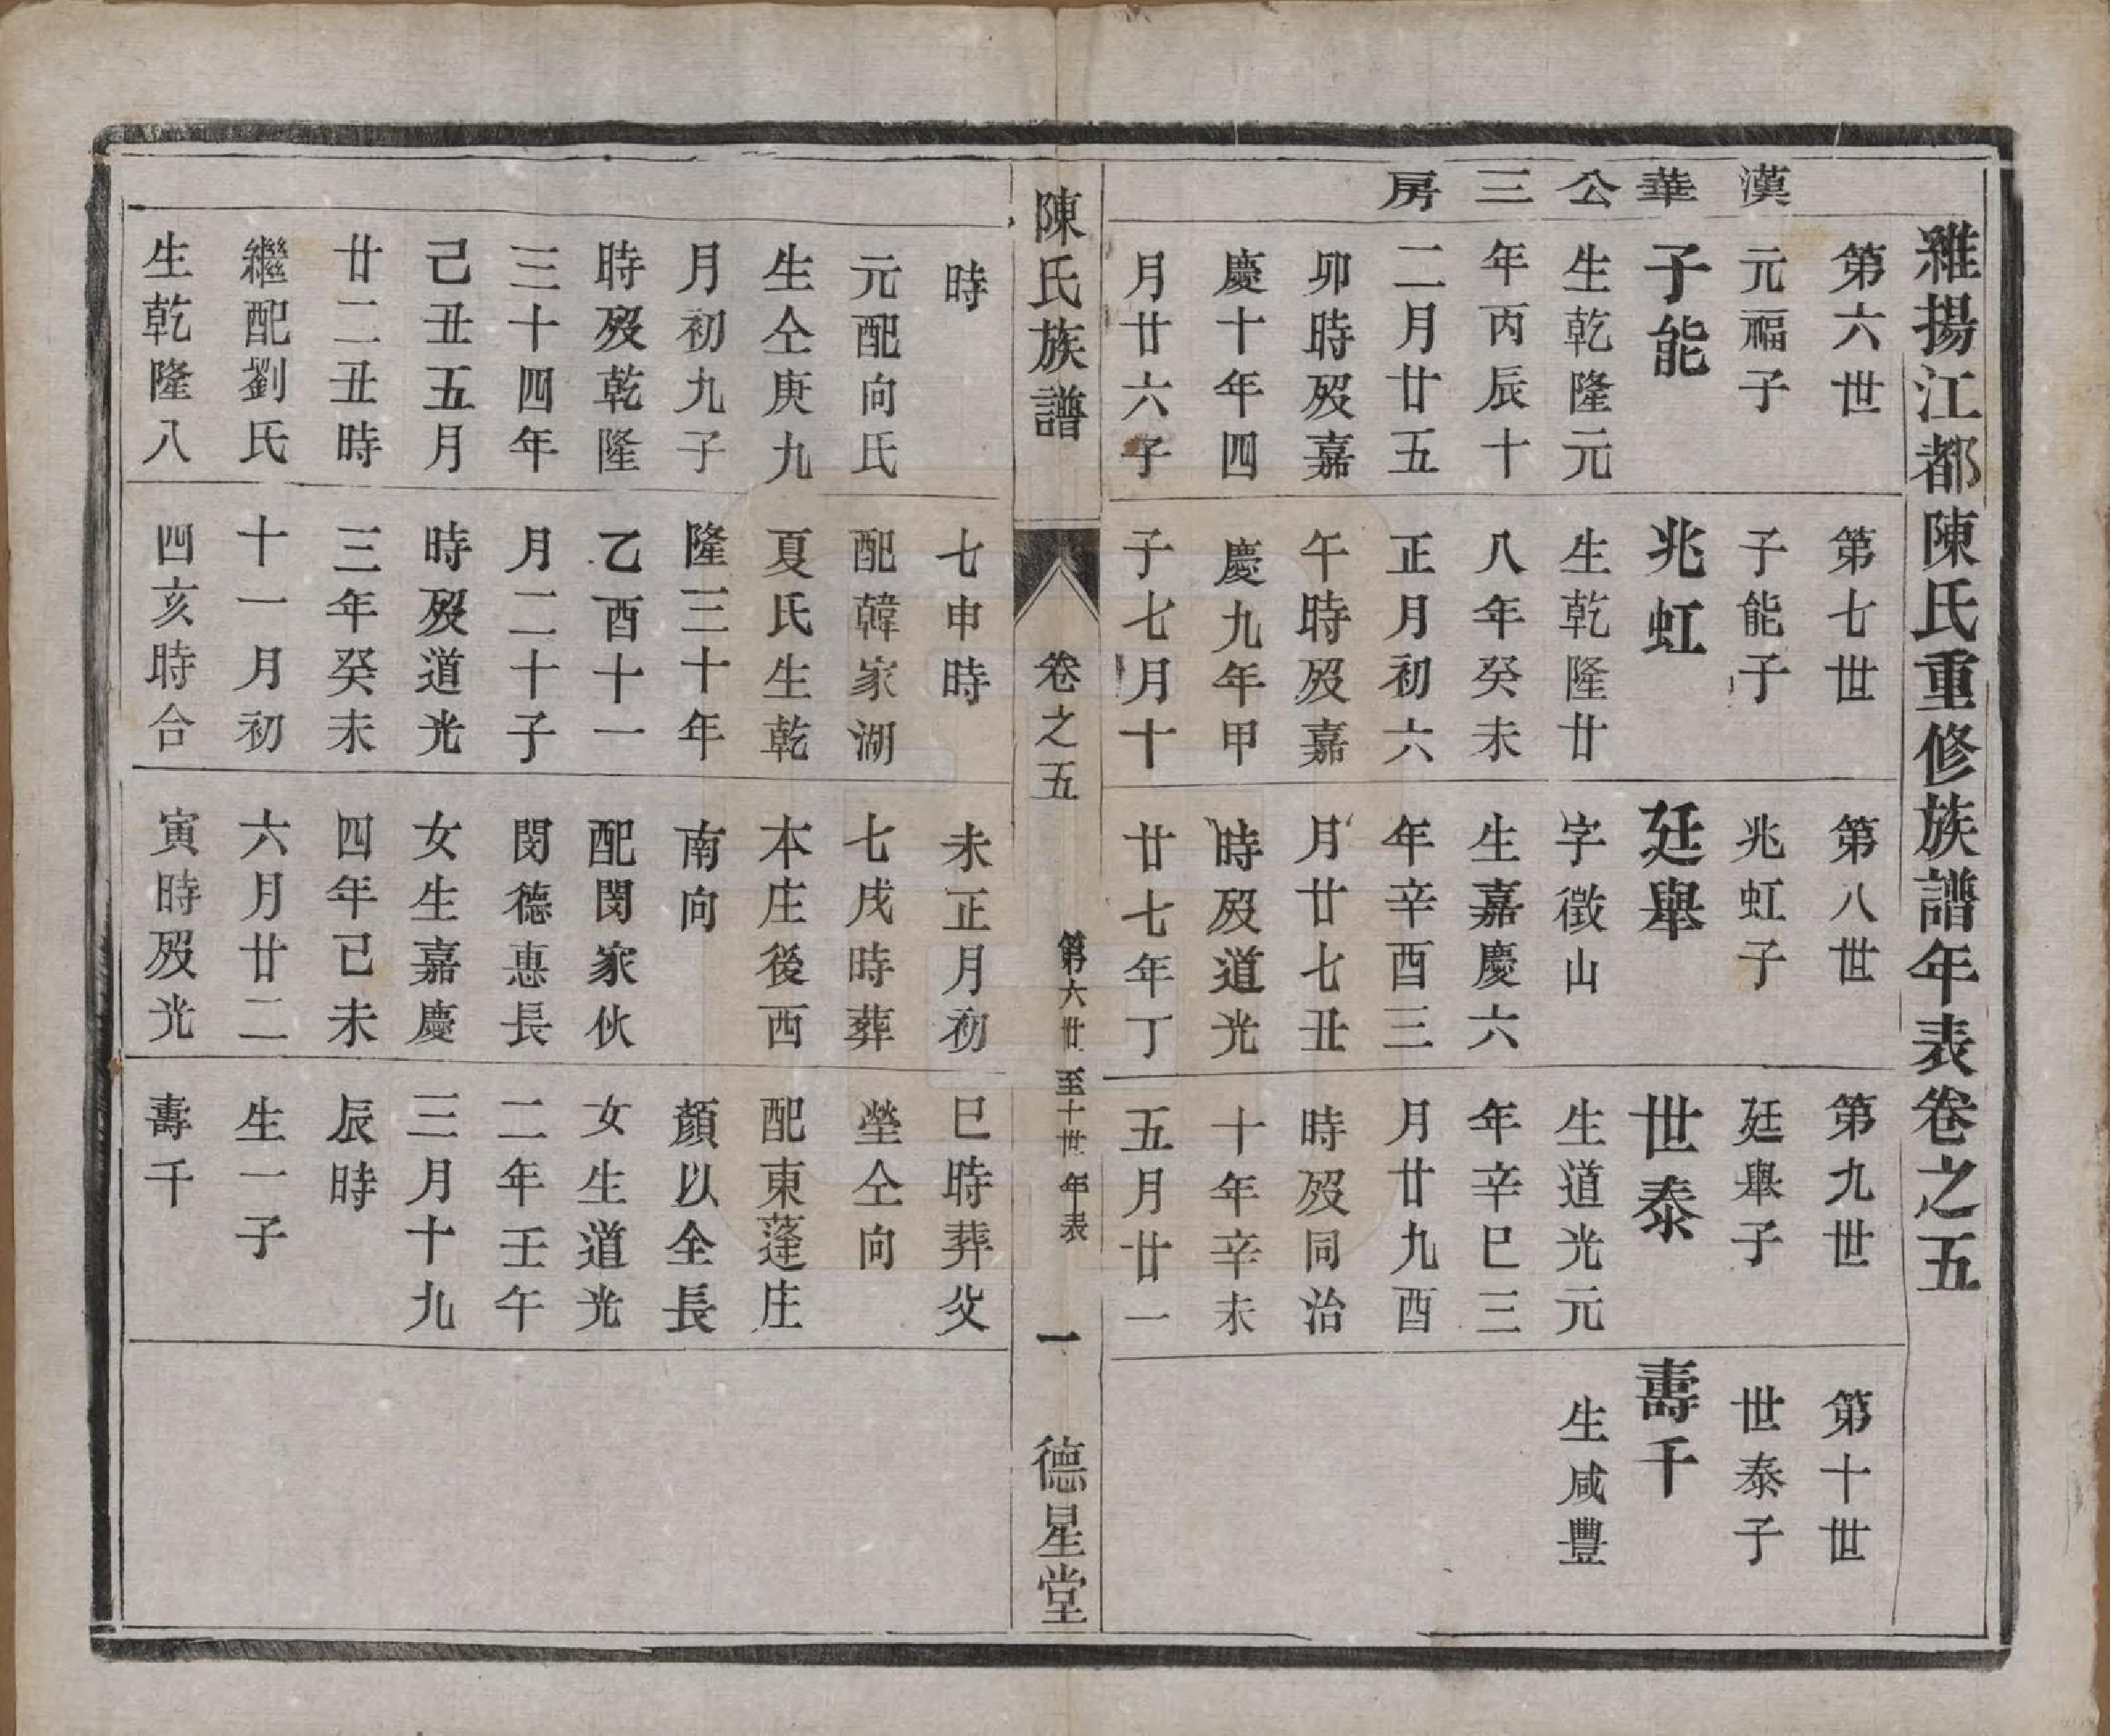 維揚江都陳氏重修族譜年表卷之五
漢華公三房
第六世
元福子
子能
生乾隆元
年丙辰十
二月廿五
卯時歿嘉
慶十年四
月廿六子
時
元配向氏
生仝庚九
月初九子
時歿乾隆
三十四年
己丑五月
廿二丑時
繼配劉氏
生乾隆八
第七世
子能子
兆虹
生乾隆廿
八年癸未
正月初六
午時歿嘉
慶九年甲
子七月十
七申時
配韓家湖
夏氏生乾
隆三十年
乙酉十一
月二十子
時歿道光
三年癸未
十一月初
四亥時合
第八世
兆虹子
廷舉
字徵山
生嘉慶六
年辛酉三
月廿七丑
時歿道光
廿七年丁
未正月初
七戌時葬
本庄後西
南向
配閔家伙
閔德惠長
女生嘉慶
四年已未
六月廿二
寅時歿光
第九世
廷舉子
世泰
生道光元
年辛巳三
月廿九酉
時歿同治
十年辛未
五月廿一
巳時葬父
塋仝向
配東蓬庄
顏以全長
女生道光
二年壬午
三月十九
辰時
生一子
壽千
第十世
世泰子
壽千
生咸豐
陳氏族譜
卷之五
第六世至十世年表
一
德星堂